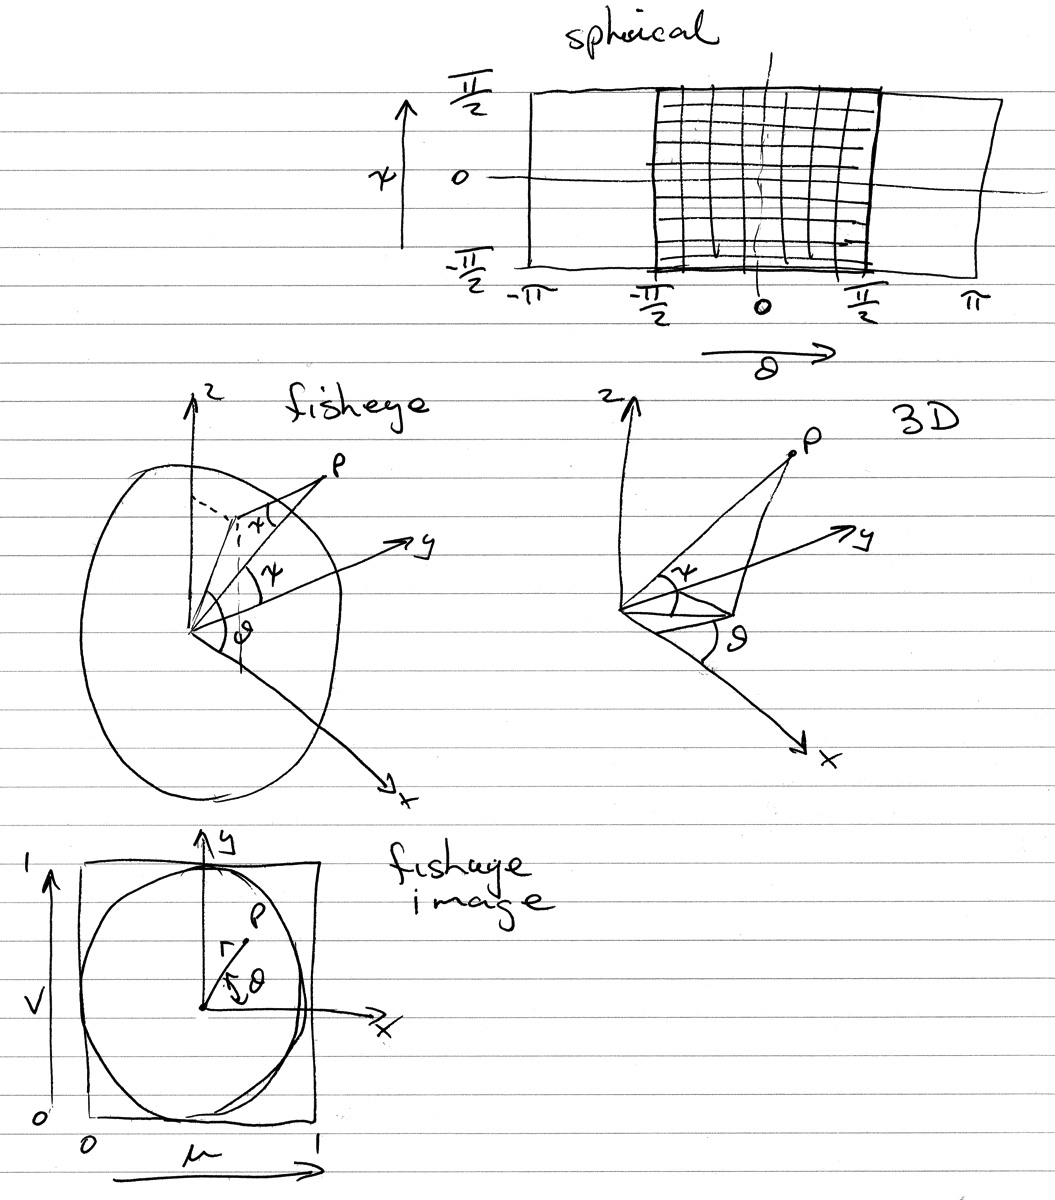 spherical
π/2
ψ
0
-π/2
-π
-π/2
0
π/2
π
θ
z
fisheye
P
ψ
y
ψ
θ
x
z
3D
P
y
ψ
θ
x
1
y
fisheye
image
P
r
θ
v
x
0
0
1
μ